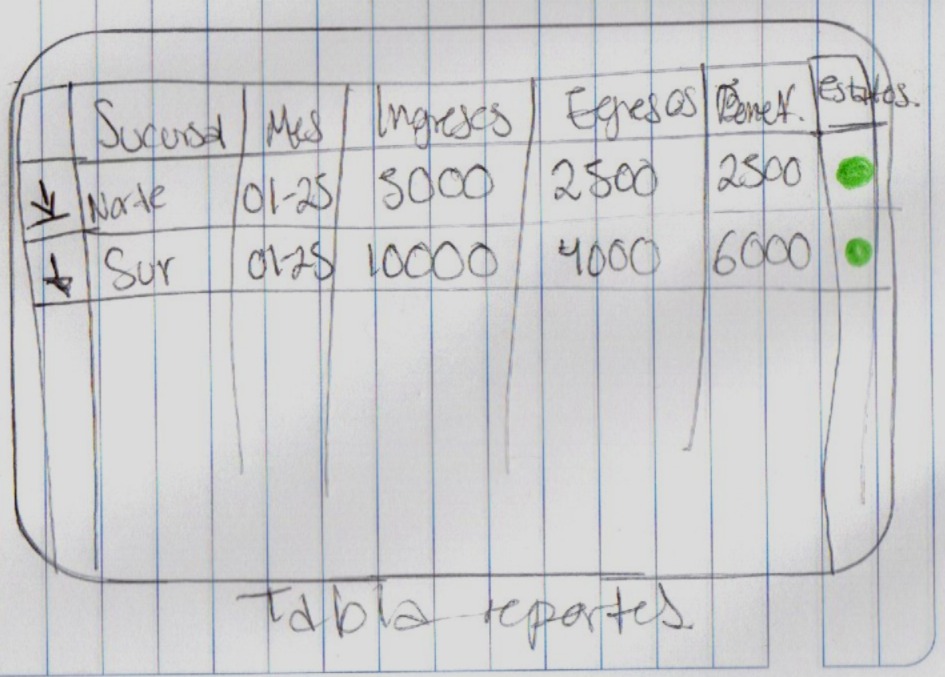 Sucursal Mes Ingresos Egresos Benef. Estatus.
Norte 01-25 5000 2500 2500
Sur 01-25 10000 4000 6000
Tabla reportes